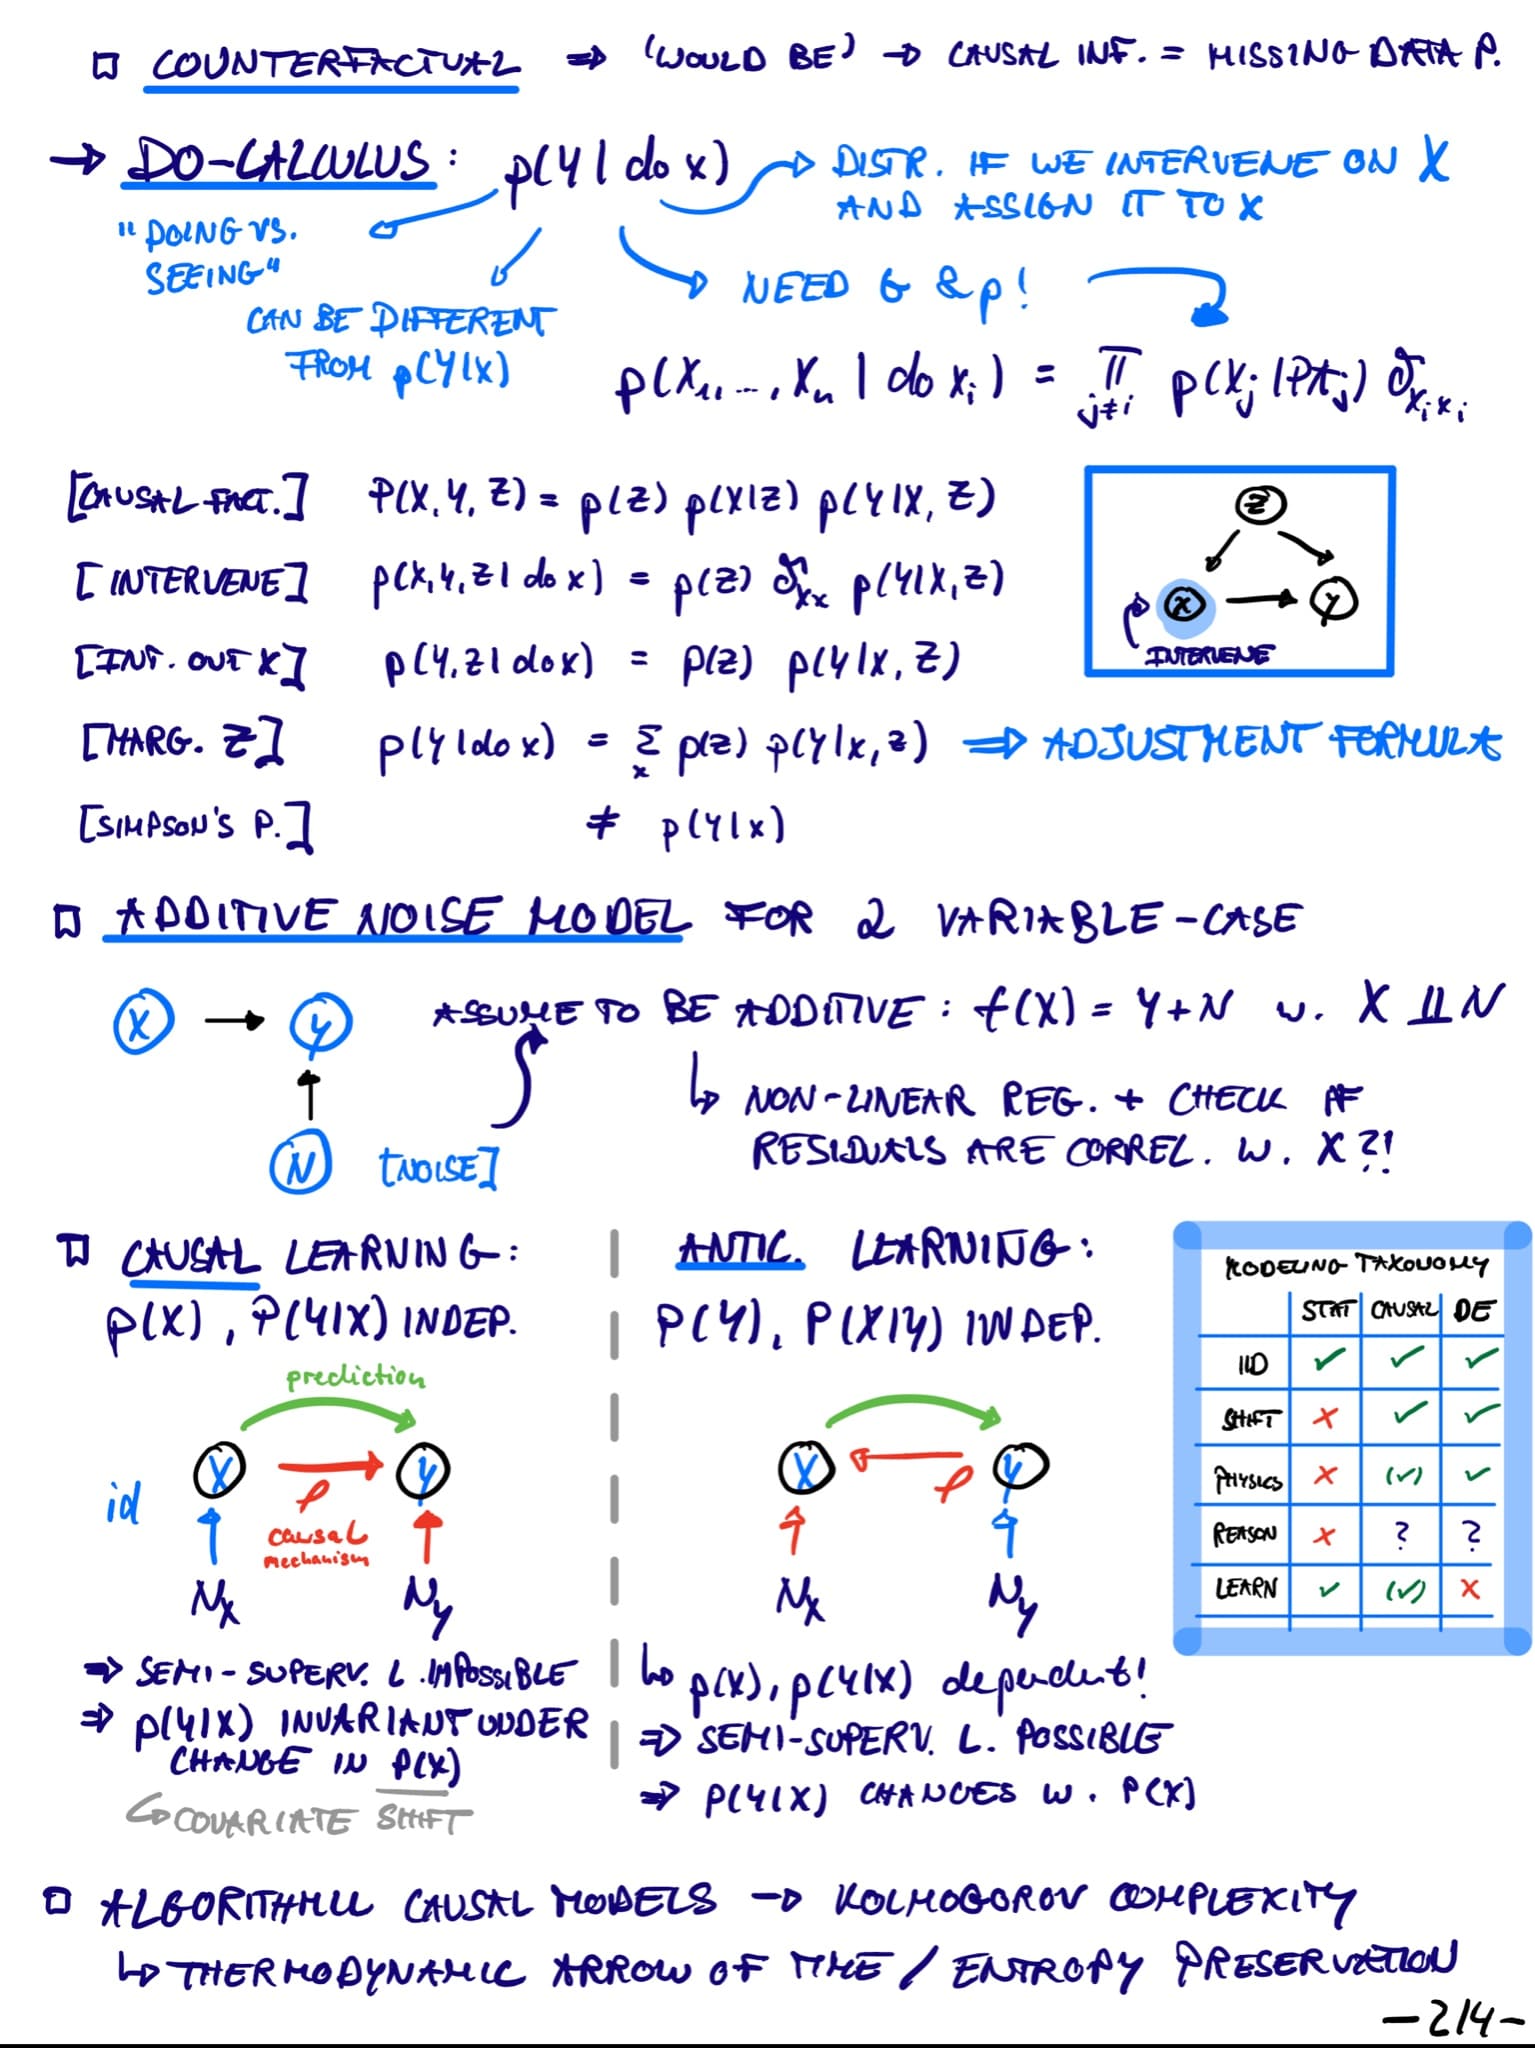 □ COUNTERFACTUAL ⇒ 'WOULD BE' → CAUSAL INF. = MISSING DATA P.
→ DO-CALCULUS: p(Y | do x) → DISTR. IF WE INTERVENE ON X
AND ASSIGN IT TO X
"DOING VS.
SEEING"
CAN BE DIFFERENT
FROM p(Y|X)
NEED G & p!
p(X₁, ..., Xₙ | do xᵢ) = ∏_{j≠i} p(Xⱼ | PAⱼ) δ_{Xᵢxᵢ}
[CAUSAL FACT.] P(X, Y, Z) = p(Z) p(X|Z) p(Y|X, Z)
[INTERVENE] p(X, Y, Z | do x) = p(Z) δ_{Xx} p(Y|X, Z)
[INT. OUT X] p(Y, Z | do x) = p(Z) p(Y|X, Z)
[MARG. Z] p(Y | do x) = Σ_x p(z) p(Y|x, z) ⇒ ADJUSTMENT FORMULA
[SIMPSON'S P.] ≠ p(Y|x)
Z
X → Y
INTERVENE
□ ADDITIVE NOISE MODEL FOR 2 VARIABLE-CASE
X → Y
ASSUME TO BE ADDITIVE: f(X) = Y + N w. X ⫫ N
↳ NON-LINEAR REG. + CHECK IF
RESIDUALS ARE CORREL. W. X ?!
N [NOISE]
□ CAUSAL LEARNING:
p(X), P(Y|X) INDEP.
prediction
X Y
id
φ
causal
mechanism
N_X N_Y
⇒ SEMI-SUPERV. L. IMPOSSIBLE
⇒ p(Y|X) INVARIANT UNDER
CHANGE IN P(X)
↳ COVARIATE SHIFT
ANTIC. LEARNING:
P(Y), P(X|Y) INDEP.
X Y
φ
N_X N_Y
↳ p(X), p(Y|X) dependent!
⇒ SEMI-SUPERV. L. POSSIBLE
⇒ P(Y|X) CHANGES W. P(X)
MODELING TAXONOMY
STAT CAUSAL DE
IID ✓ ✓ ✓
SHIFT ✗ ✓ ✓
PHYSICS ✗ (✓) ✓
REASON ✗ ? ?
LEARN ✓ (✓) ✗
□ ALGORITHMIC CAUSAL MODELS → KOLMOGOROV COMPLEXITY
↳ THERMODYNAMIC ARROW OF TIME / ENTROPY PRESERVATION
-214-